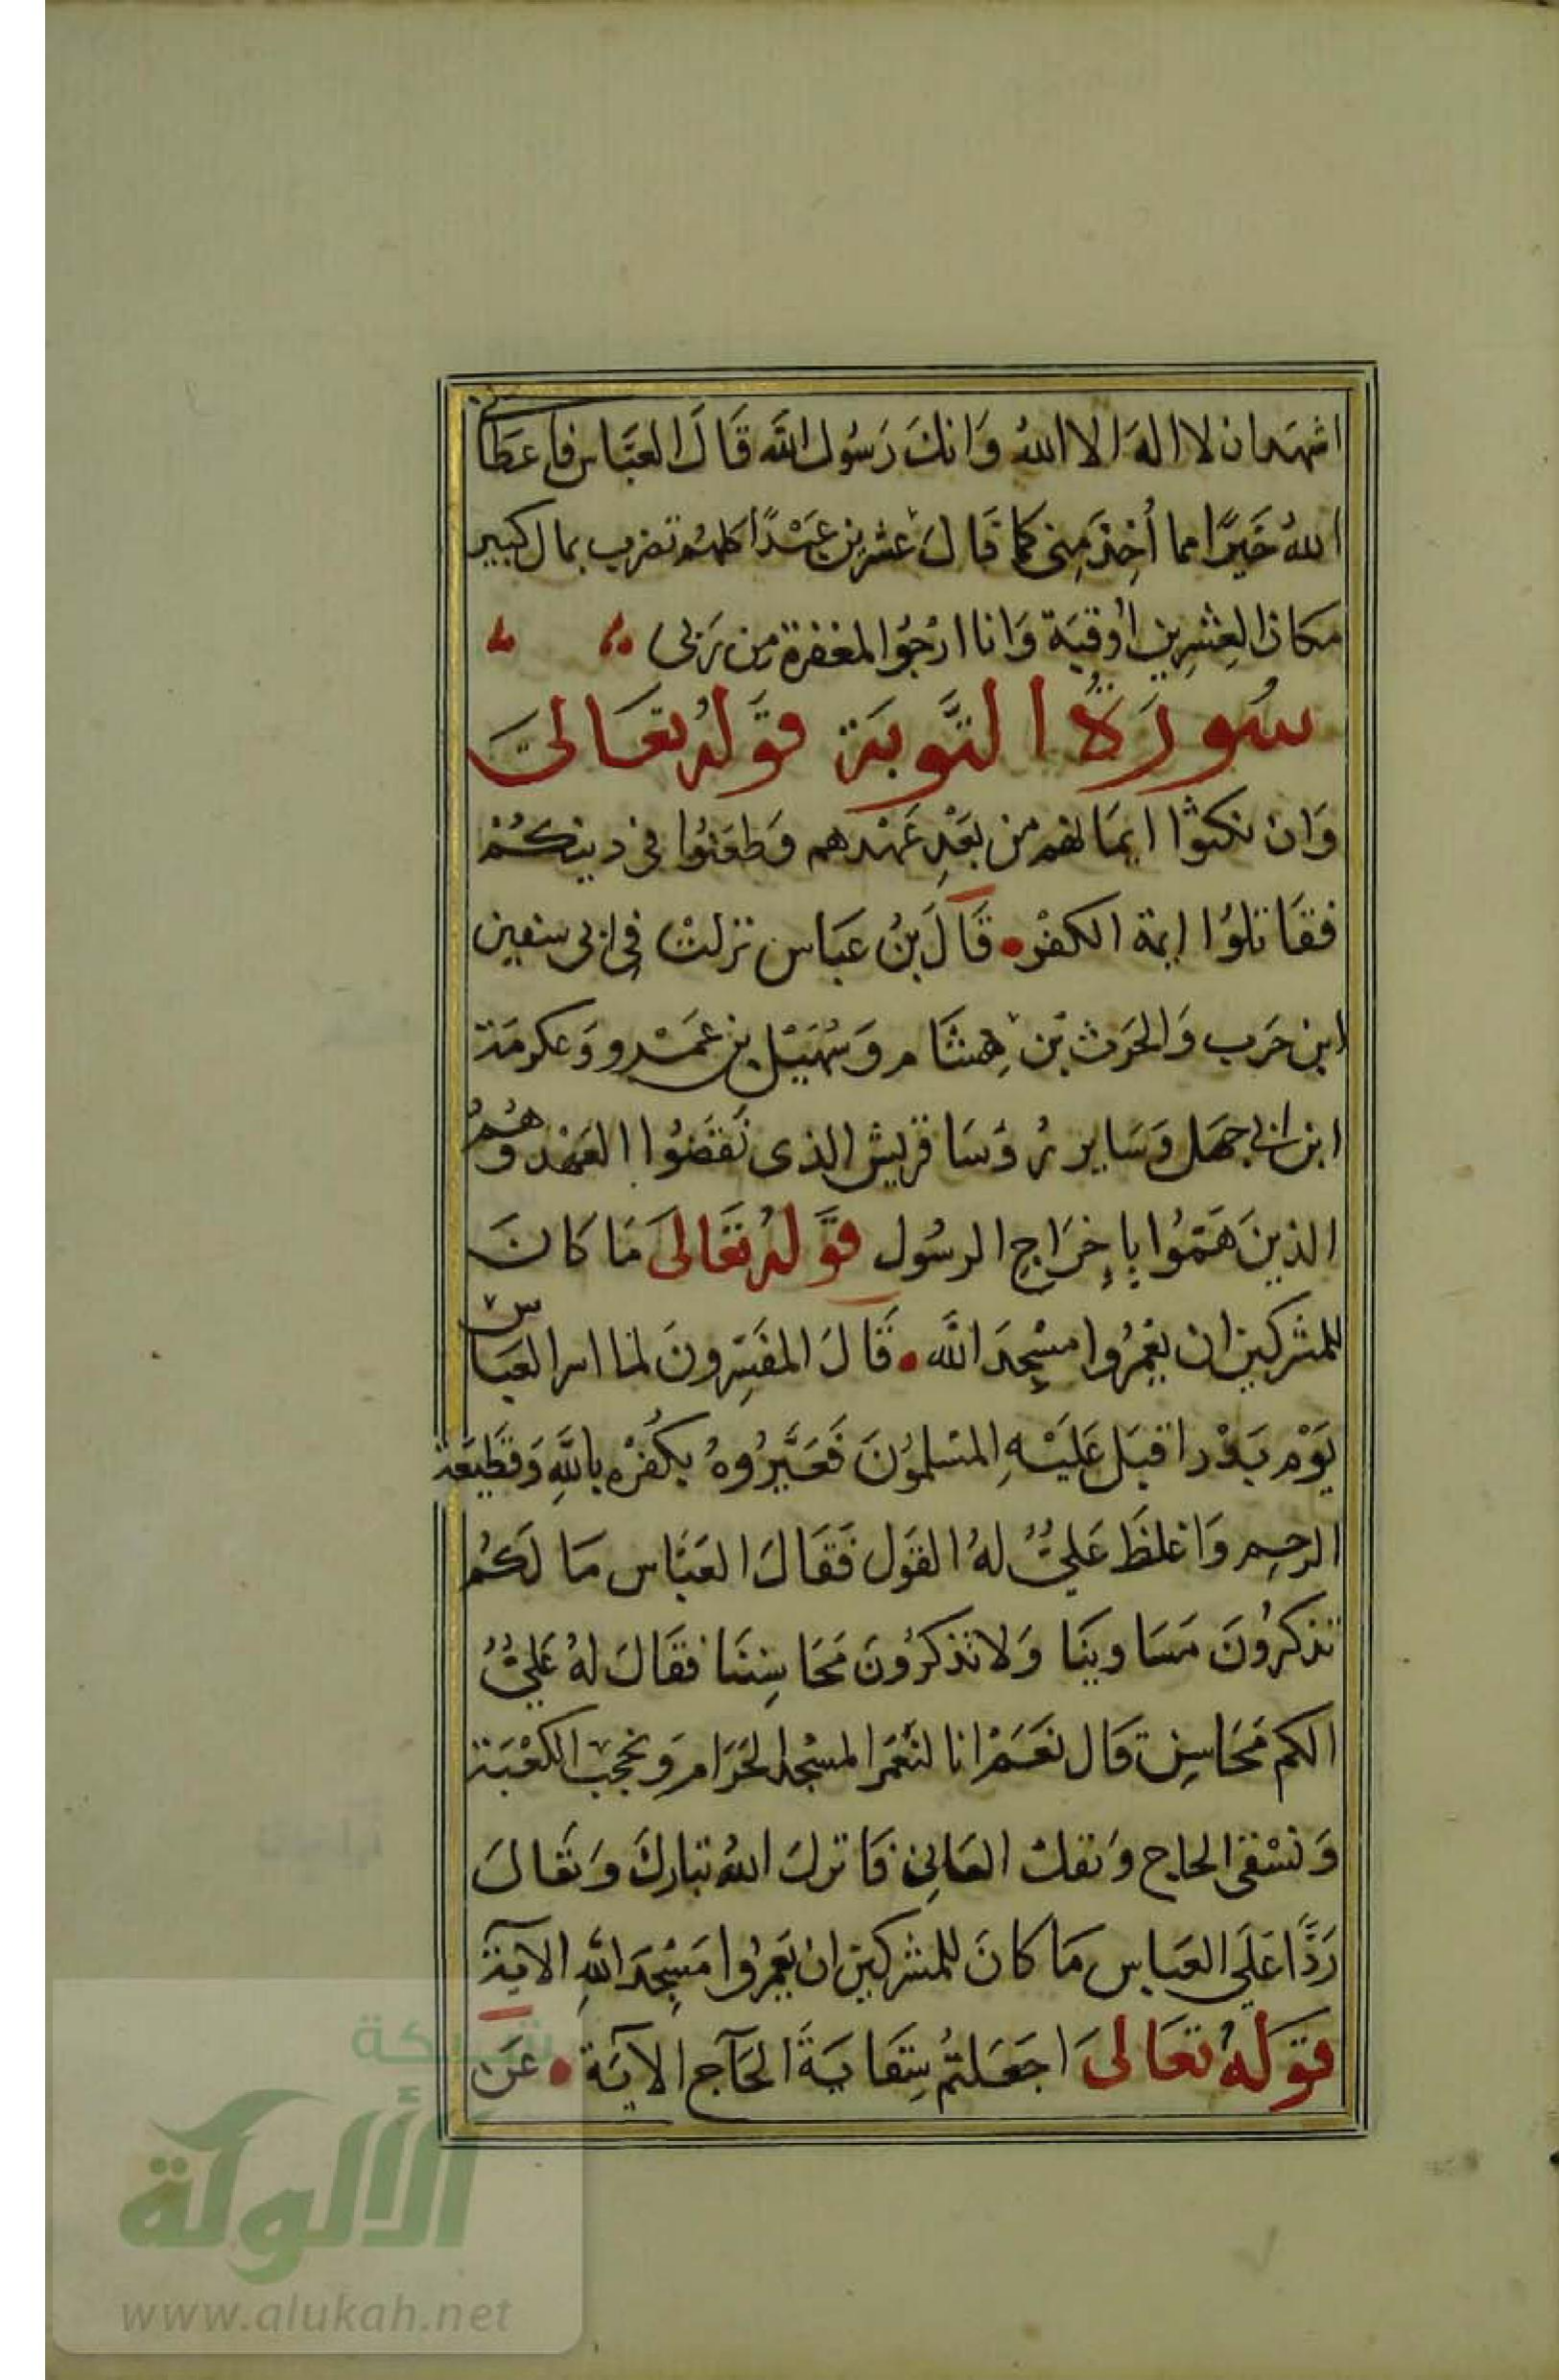 اشهد ان لا اله الا الله وَانكَ رَسُول الله قَالَ العبَّاس فاعطانى
اللهُ خَيرًا مما أُخِذَ مِنى كما قَالَ عشرين عَبْدًا كلهُم تضرب بمال كبير
مكان العِشرِين اُوقيَة وَانا ارْجُوا المغفرة من رَبى
سُورَةُ التَّوبَة قَولهُ تعَالىَ
وَان نكثوا ايمَانهم من بَعْدِ عَهْدهم وَطعَنُوا فى دينكُمْ
فقَاتلوُا ايمة الكفْر قَالَ بنُ عبَاس نزلتْ فى ابى سفين
ابن حَرب وَالحَرث بن هِشَام وَسُهَيْل بن عَمْرو وَعكرمَة
ابن ابى جهَل وَسَاير رُوُسَا قريش الذى نَقضُوا العَهْد وَهُمُ
الذينَ هَمّوُا بِإِخرَاجِ الرسُول قَولهُ تعَالىَ مَا كَانَ
للمشركين ان يَعْمُرُوا مسْجِدَ الله قَالَ المفَسِّرونَ لما اسر العبَاس
يَوْم بَدْر اقبَل عَلَيْهِ المسْلموُنَ فَعَيَّرُوهُ بكُفرْه بالله وَقطَيعَة
الرحِم وَاغلظَ عَلىُّ لهُ القَول فَقَالَ العَبَّاس مَا لَكمُ
تذكرُونَ مَسَاوينَا وَلا تذكرُونَ مَحَاسِننَا فقَالَ لهُ عَلىُّ
الكم مَحَاسِن قَال نَعَمْ انا لنَعْمَر المسْجد الحَرَام وَنحجب الكعْبَة
وَنسْقى الحاج وَنفك العَانِى فَانزل اللهُ تبَاركَ وَتَعَالىَ
رَدًّا عَلَى العبَاس مَا كانَ للمشركين ان يَعمرُوا مَسْجِدَ اللهِ الآية
قَولهُ تعَالىَ اجَعَلتُم سِقَايَةَ الحَآج الآيَة عَن
شبكة
الألوكة
www.alukah.net